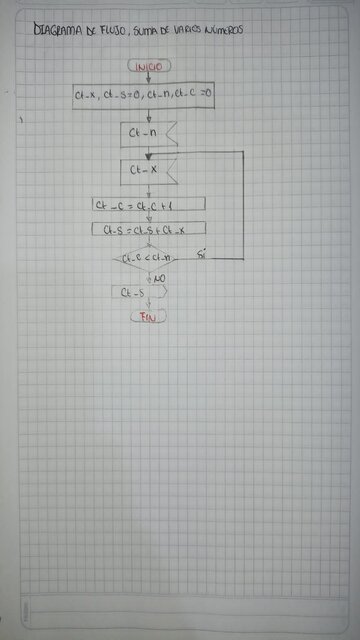 DIAGRAMA DE FLUJO, SUMA DE VARIOS NÚMEROS
INICIO
Ct-x, Ct-S=0, Ct-n, Ct-C=0
Ct-n
Ct-x
Ct-C = Ct-C + 1
Ct-S = Ct-S + Ct-x
Ct-C < Ct-n
Si
NO
Ct-S
FIN